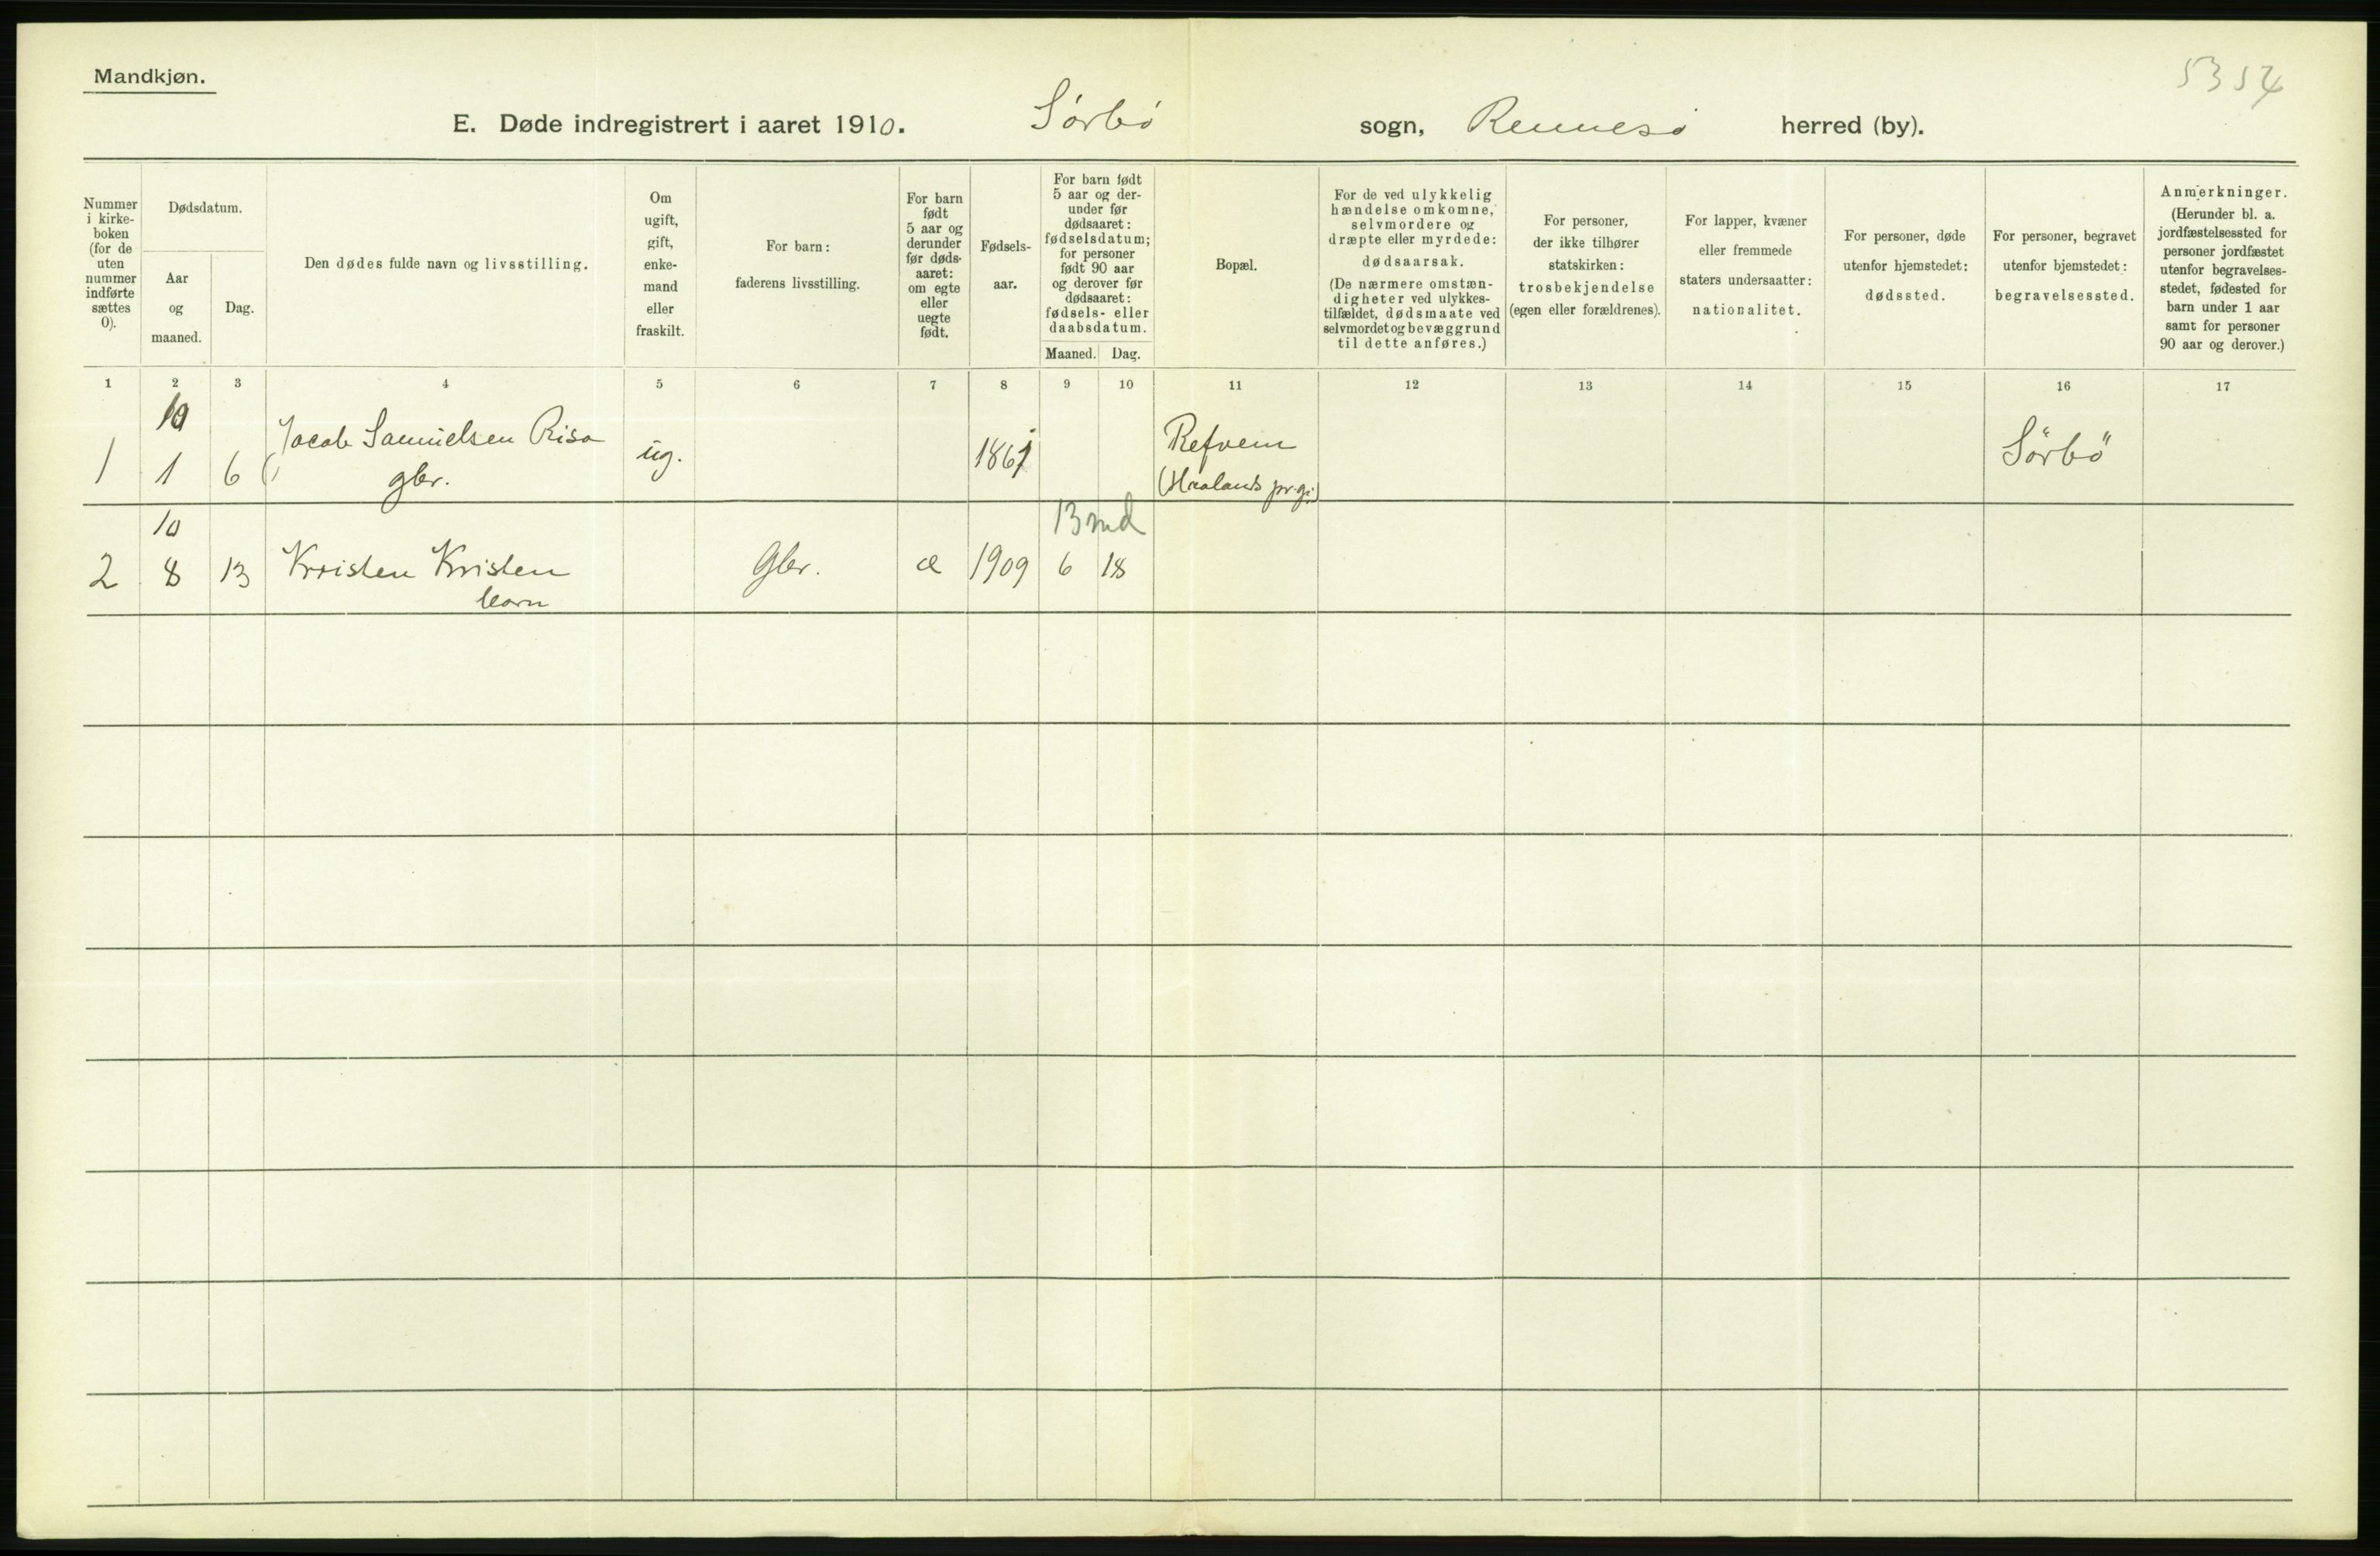 Mandkjøn.
5354
E. Døde indregistrert i aaret 1910. Sörbö sogn, Rennesö herred (by).
Nummer
i kirke-
boken
(for de
uten
nummer
indførte
sættes
0).
Dødsdatum.
Aar
og
maaned.
Dag.
Den dødes fulde navn og livsstilling.
Om
ugift,
gift,
enke-
mand
eller
fraskilt.
For barn:
faderens livsstilling.
For barn
født
5 aar og
derunder
før døds-
aaret:
om egte
eller
uegte
født.
Fødsels-
aar.
For barn født
5 aar og der-
under før
dødsaaret:
fødselsdatum;
for personer
født 90 aar
og derover før
dødsaaret:
fødsels- eller
daabsdatum.
Maaned. Dag.
Bopæl.
For de ved ulykkelig
hændelse omkomne,
selvmordere og
dræpte eller myrdede:
dødsaarsak.
(De nærmere omstæn-
digheter ved ulykkes-
tilfældet, dødsmaate ved
selvmordet og bevæggrund
til dette anføres.)
For personer,
der ikke tilhører
statskirken:
trosbekjendelse
(egen eller forældrenes).
For lapper, kvæner
eller fremmede
staters undersaatter:
nationalitet.
For personer, døde
utenfor hjemstedet:
dødssted.
For personer, begravet
utenfor bjemstedet:
begravelsessted.
Anmerkninger.
(Herunder bl. a.
jordfæstelsessted for
personer jordfæstet
utenfor begravelses-
stedet, fødested for
barn under 1 aar
samt for personer
90 aar og derover.)
1 2 3 4 5 6 7 8 9 10 11 12 13 14 15 16 17
10
Jacob Samuelsen Risa Refvem
1 1 6 gbr. ug. 1861 Sörbö
10 13 md
2 8 13 Kristen Kristen Gbr. æ 1909 6 18